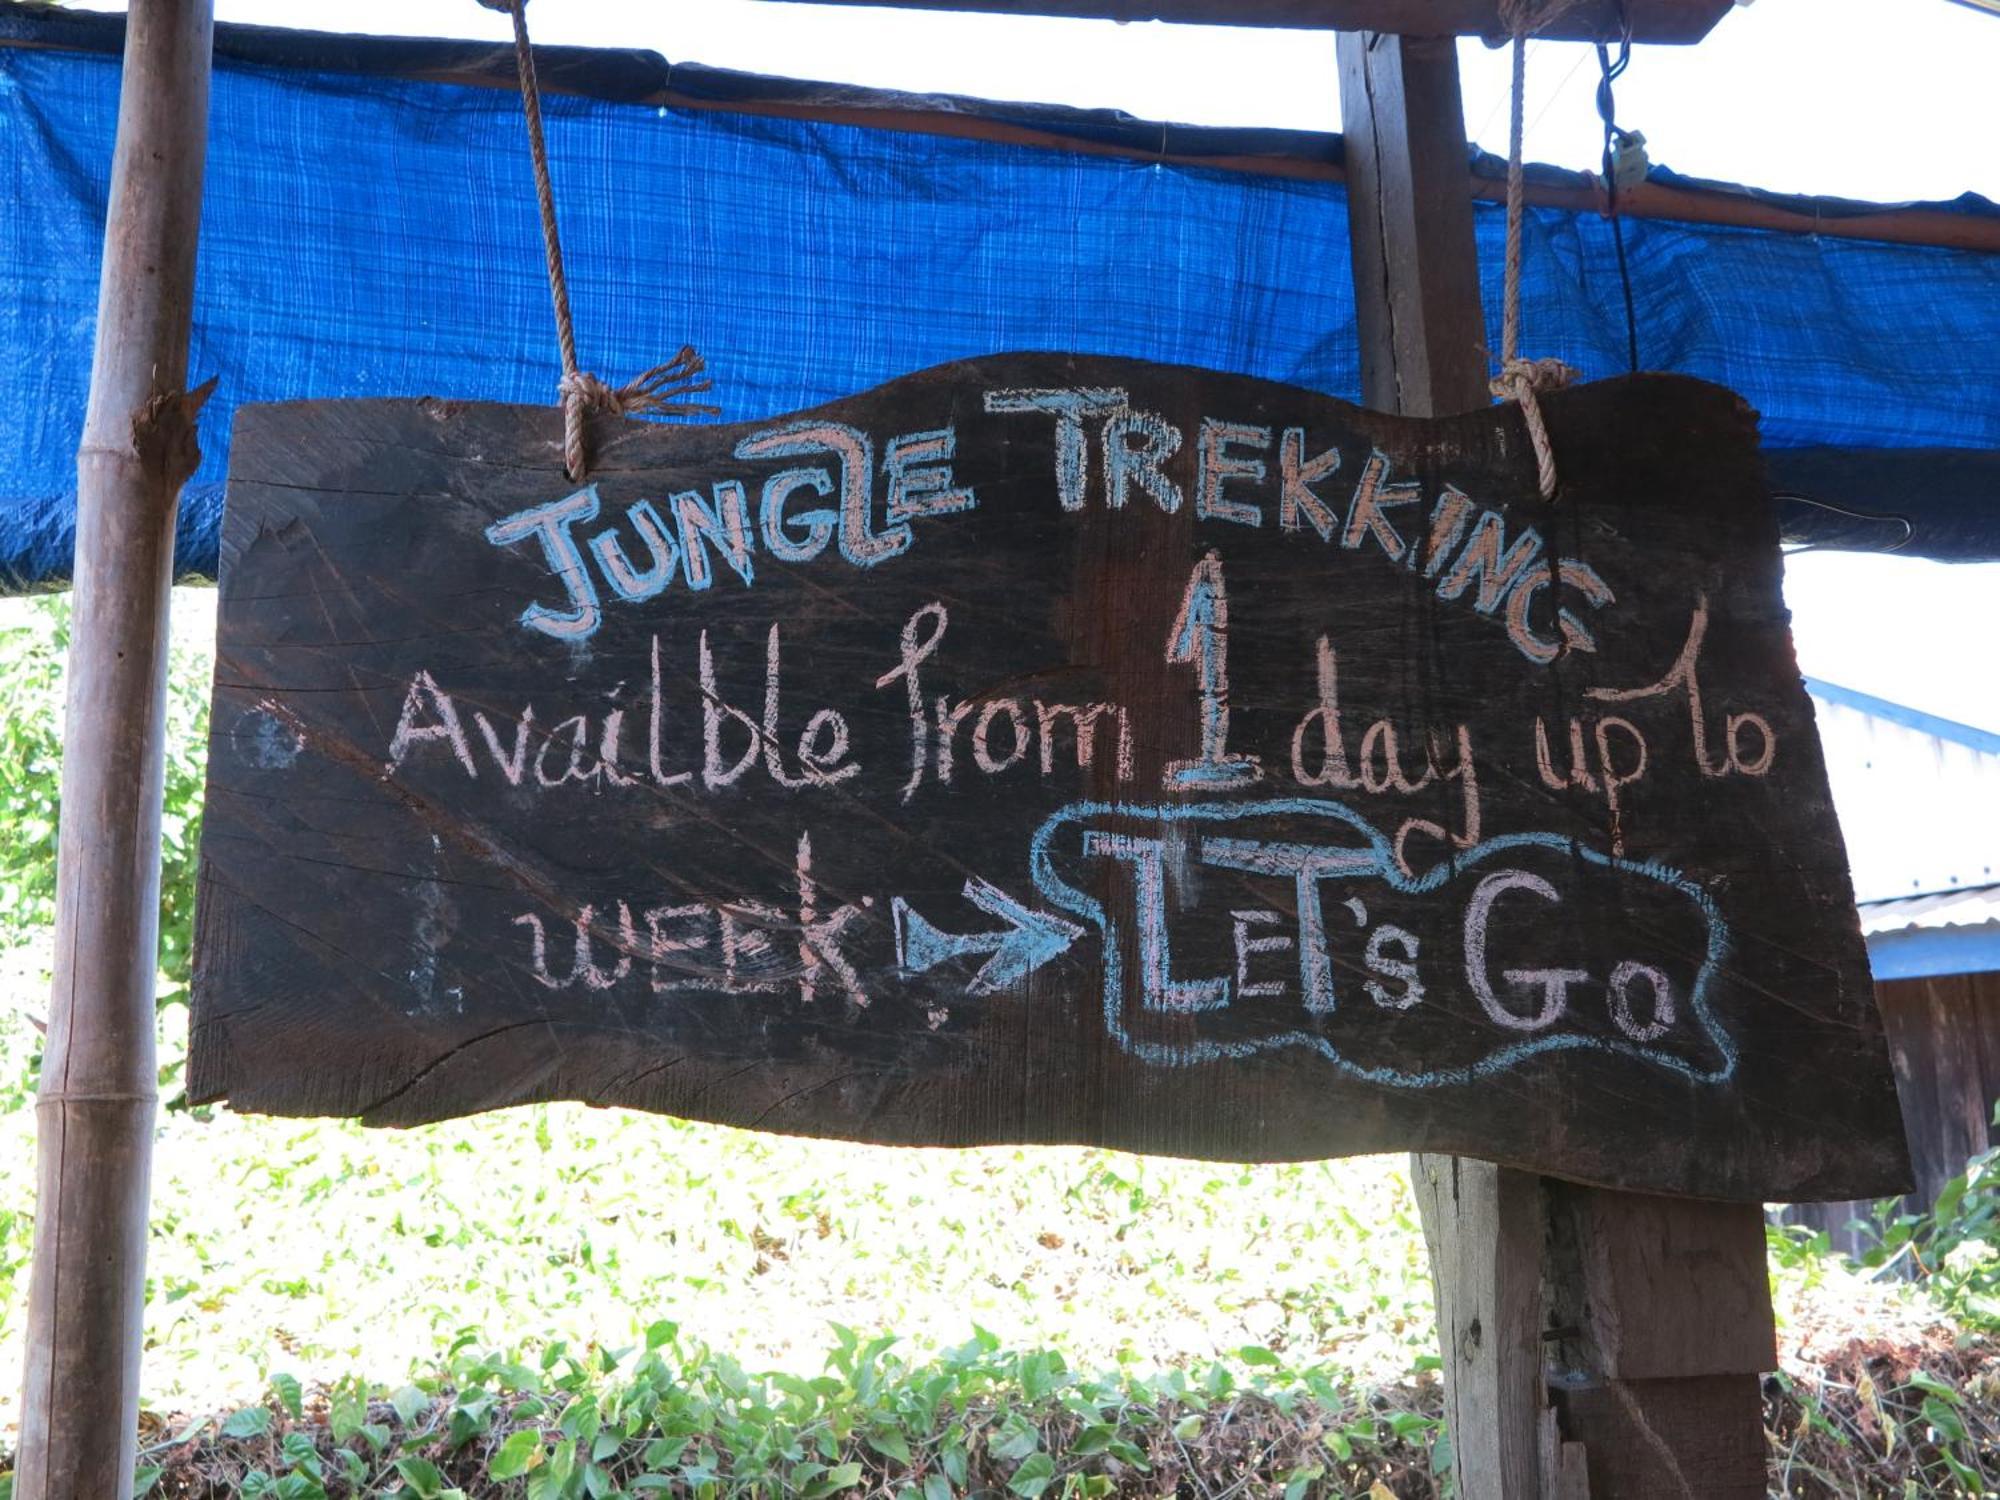 JUNGLE TREKKING
Availble from 1 day up to
1 WEEK LET'S GO